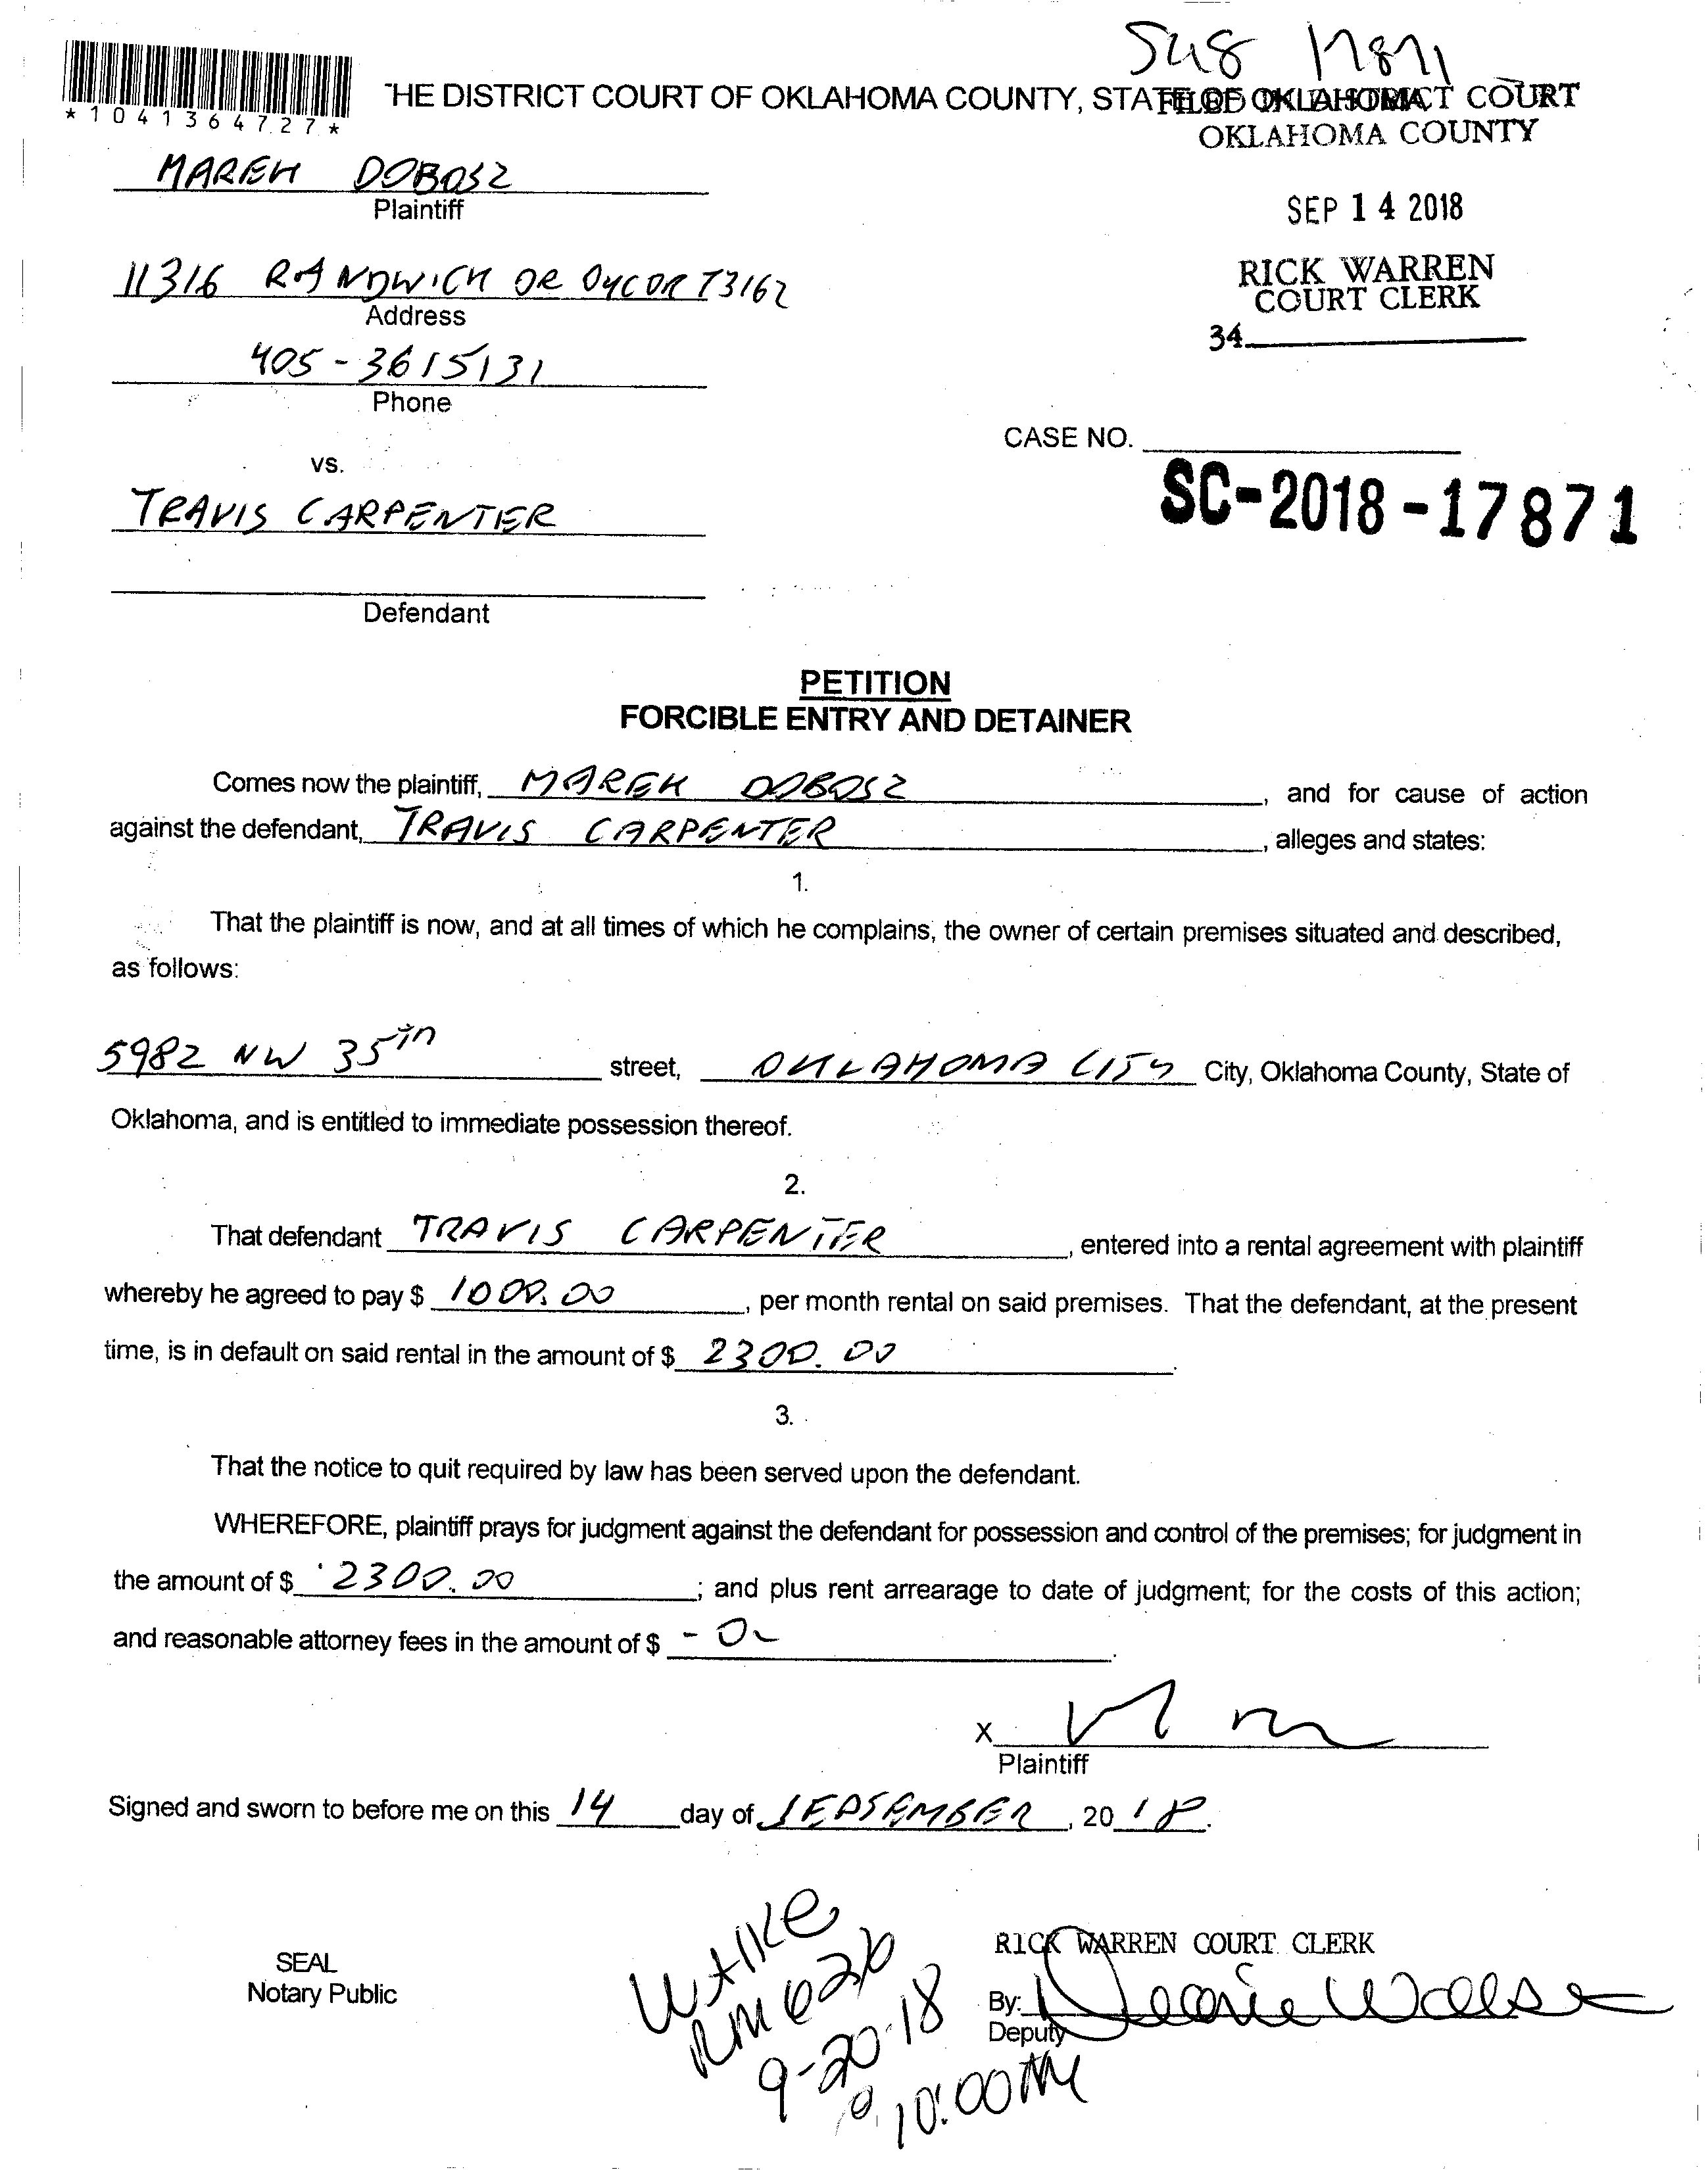 SC18 17871
THE DISTRICT COURT OF OKLAHOMA COUNTY, STATE OF OKLAHOMA
FILED IN DISTRICT COURT
OKLAHOMA COUNTY
*1041364727*
MAREK DOBOSZ
Plaintiff
SEP 14 2018
11316 RANDWICK DR OKC OK 73162
Address
RICK WARREN
COURT CLERK
34
405-3615131
Phone
CASE NO.
vs.
SC-2018-17871
TRAVIS CARPENTER
Defendant
PETITION
FORCIBLE ENTRY AND DETAINER
Comes now the plaintiff, MAREK DOBOSZ, and for cause of action
against the defendant, TRAVIS CARPENTER, alleges and states:
1.
That the plaintiff is now, and at all times of which he complains, the owner of certain premises situated and described,
as follows:
5982 NW 35TH street, OKLAHOMA CITY City, Oklahoma County, State of
Oklahoma, and is entitled to immediate possession thereof.
2.
That defendant TRAVIS CARPENTER, entered into a rental agreement with plaintiff
whereby he agreed to pay $ 1000.00, per month rental on said premises. That the defendant, at the present
time, is in default on said rental in the amount of $ 2300.00.
3.
That the notice to quit required by law has been served upon the defendant.
WHEREFORE, plaintiff prays for judgment against the defendant for possession and control of the premises; for judgment in
the amount of $ 2300.00; and plus rent arrearage to date of judgment; for the costs of this action;
and reasonable attorney fees in the amount of $ -0-.
X
Plaintiff
Signed and sworn to before me on this 14 day of SEPTEMBER, 2018.
SEAL
Notary Public
RM 626
9-20-18
@ 10:00 AM
RICK WARREN COURT CLERK
By:
Deputy